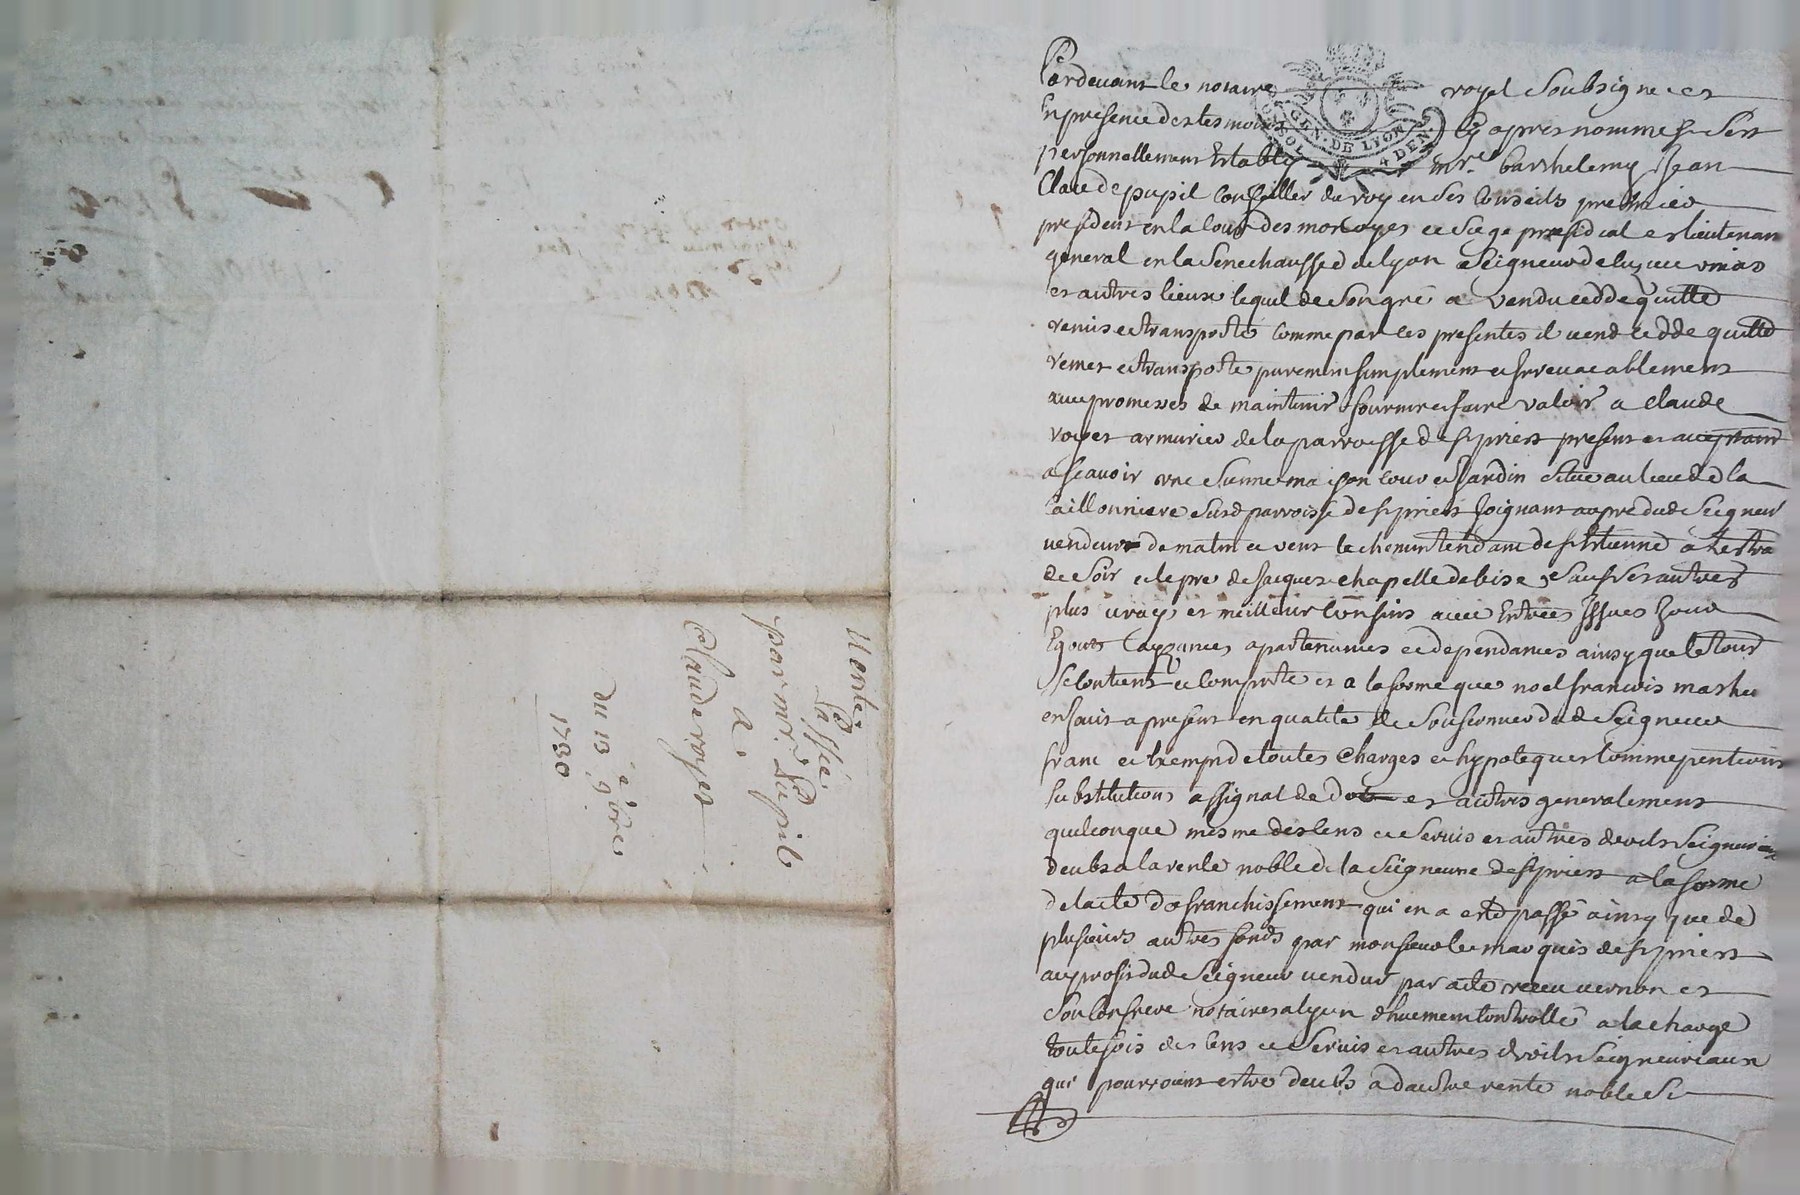 Vente
Passée
par mr. Pupil
a
Claude royer
du 13e 9bre
1730
GEN. DE LYON
SOL 4 DEN.
Pardevant le notaire royal soubsigne et
En presence des tesmoins Cy apres nommes sest
personnellement Estably mre. barthelemy Jean
Claude pupil conseiller du roy en ses conseils premier
president en la cour des monoyes et siege presidial et lieutenant
general en la senechaussee de lyon seigneur de
et autres lieux lequel de son gré a vendu cedde quitté
remis et transporté comme par ces presentes il vend cedde quitte
remet et transporte purement simplement et irrevocablement
avec promesses de maintenir fournir et faire valoir a claude
royer armurier de la parroisse de st priest present et acceptant
a scavoir une sienne maison cour et Jardin situé au lieu de la
susd parroisse de st priest Joignant au pré dud Seigneur
vendeur de matin et vent le chemin tendant de st Etienne à
de soir et le pre de Jacques chapelle de bise sauf ses autres
plus vrays et meilleur confins avec Entrées Issues
Egouts apartenances et dependances ainsy que le tout
se contient et comporte et a la forme que noel francois
en Jouit a present en qualité de sousfermier dud Seigneur
franc et Exempt de toutes charges et hypoteques comme
substitutions assignat de dot et autres generalement
quelconque mesme des cens et servis et autres droits seigneuriaux
deubs a la rente noble de la seigneurie de st priest a la forme
de lacte dafranchissement qui en a eté passé ainsy que de
plusieurs autres fonds par monsieur le marquis de st priest
au profit dud Seigneur vendeur par acte receu vernon et
son confrere notaires a lyon dhuement controllé a la charge
toutefois des cens et servis et autres droits seigneuriaux
qui pourroient estre deubs a dautre rente noble